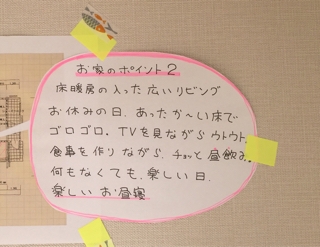 お家のポイント2
床暖房の入った広いリビング
お休みの日、あったか〜い床で
ゴロゴロ。TVを見ながらウトウト。
食事を作りながら、チョッと昼飲み。
何もなくても、楽しい日。
楽しいお昼寝